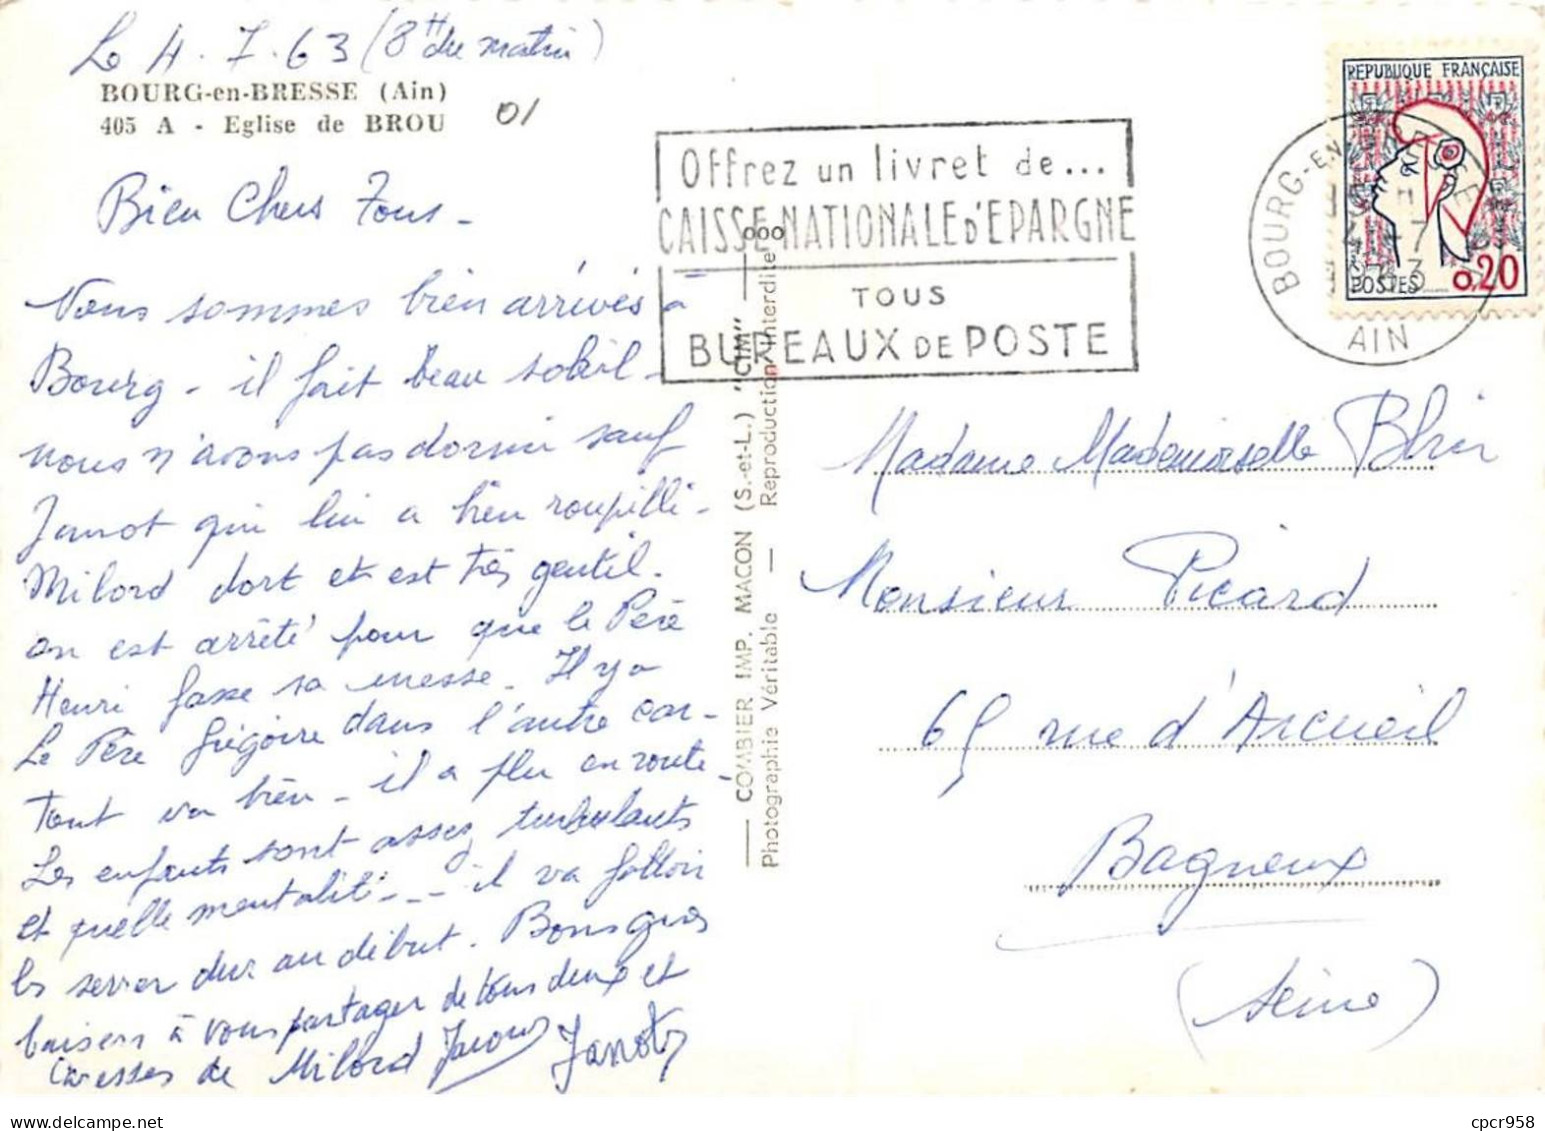 Le 4.7.63 (8H du matin)
BOURG-en-BRESSE (Ain)
405 A - Eglise de BROU
01
Bien Chers Tous -
Nous sommes bien arrivés à
Bourg - il fait beau soleil -
nous n'avons pas dormi sauf
Janot qui lui a bien roupillé -
Milord dort et est très gentil.
on est arrêté pour que le Père
Henri fasse sa messe - Il y a
le Père Grégoire dans l'autre car -
Tout va bien - il a plu en route -
Les enfants sont assez turbulents
et quelle mentalité --- il va falloir
les serrer dur au début. Bons gros
baisers à vous partager de tous deux et
Caresses de Milord
Janot
Offrez un livret de...
CAISSE NATIONALE D'EPARGNE
TOUS
BUREAUX DE POSTE
BOURG-EN-BRESSE
15 H
4-7
1963
AIN
REPUBLIQUE FRANÇAISE
POSTES 0,20
COMBIER IMP. MACON (S.-et-L.) "CIM"
Photographie Véritable — Reproduction Interdite
Madame Mademoiselle Blin
Monsieur Picard
65 rue d'Arcueil
Bagneux
(Seine)
cpcr958